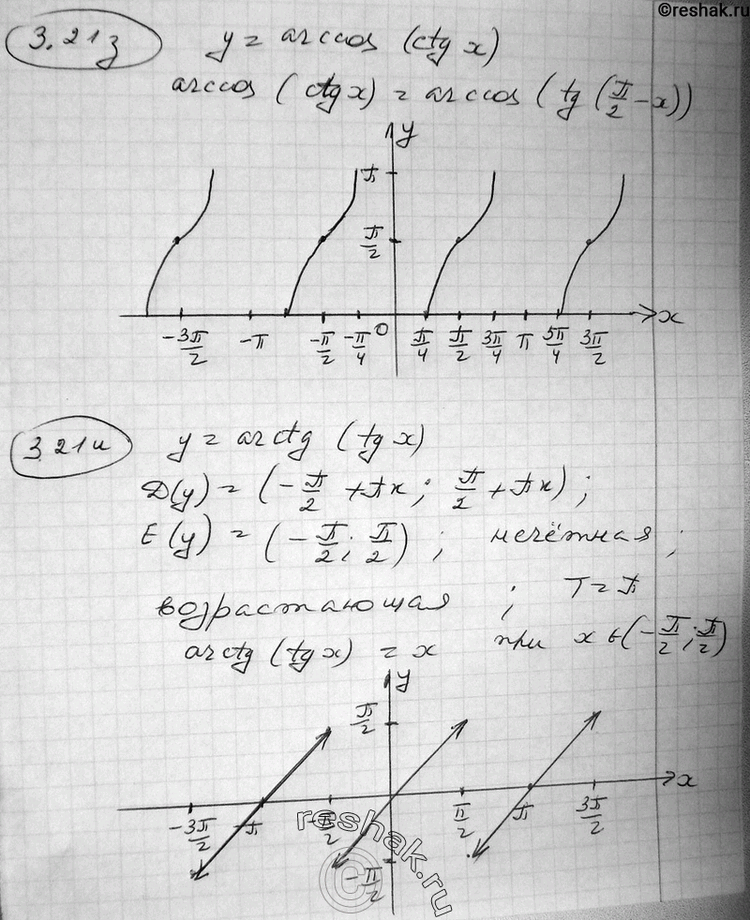 ©reshak.ru
3.21з
y = arccos (ctg x)
arccos (ctg x) = arccos (tg (π/2 - x))
y
π
π/2
-3π/2 -π -π/2 -π/4 0 π/4 π/2 3π/4 π 5π/4 3π/2 x
3.21и
y = arctg (tg x)
D(y) = (-π/2 + πk; π/2 + πk);
E(y) = (-π/2; π/2); нечётная;
возрастающая; T = π
arctg (tg x) = x при x ∈ (-π/2; π/2)
y
π/2
x
-3π/2 -π -π/2 π/2 π 3π/2
-π/2
reshak.ru
©